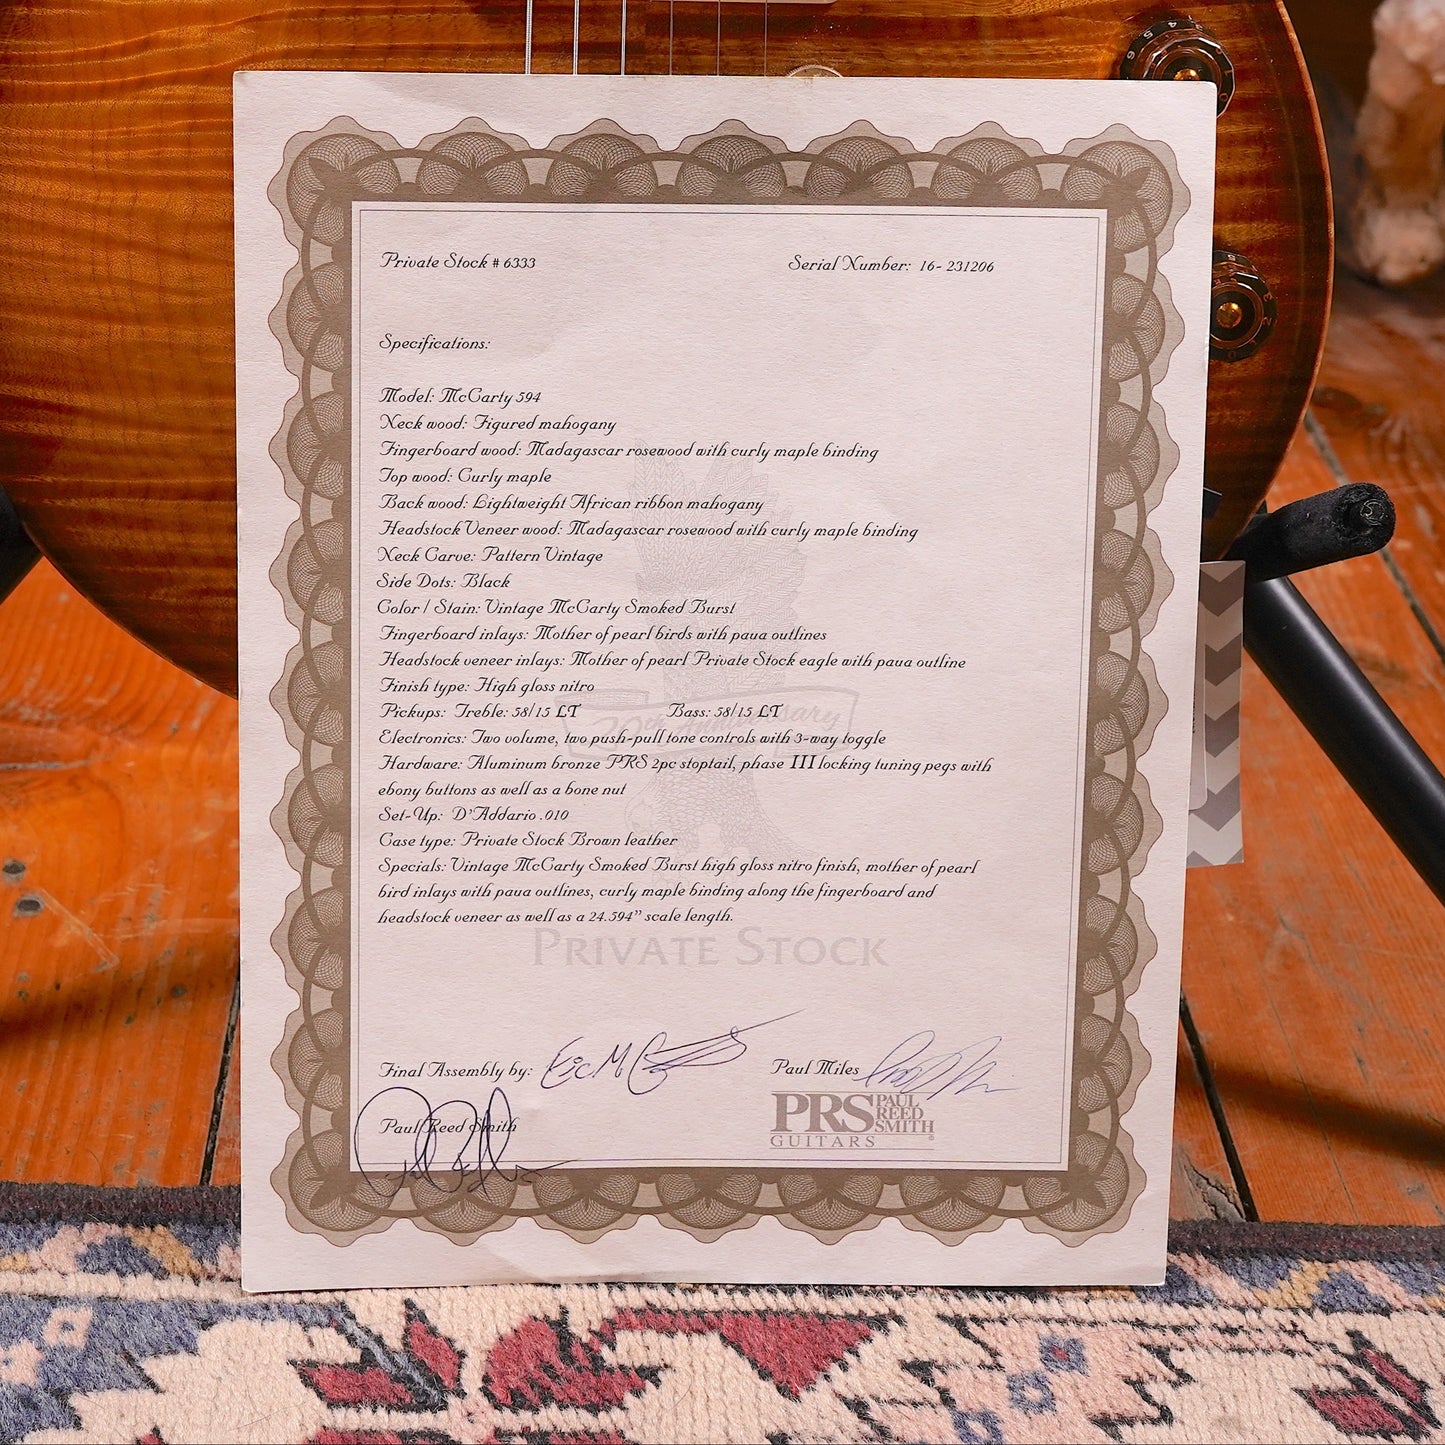 Private Stock # 6333 Serial Number: 16- 231206
Specifications:
Model: McCarty 594
Neck wood: Figured mahogany
Fingerboard wood: Madagascar rosewood with curly maple binding
Top wood: Curly maple
Back wood: Lightweight African ribbon mahogany
Headstock Veneer wood: Madagascar rosewood with curly maple binding
Neck Carve: Pattern Vintage
Side Dots: Black
Color / Stain: Vintage McCarty Smoked Burst
Fingerboard inlays: Mother of pearl birds with paua outlines
Headstock veneer inlays: Mother of pearl Private Stock eagle with paua outline
Finish type: High gloss nitro
Pickups: Treble: 58/15 LT Bass: 58/15 LT
20th Anniversary
Electronics: Two volume, two push-pull tone controls with 3-way toggle
Hardware: Aluminum bronze PRS 2pc stoptail, phase III locking tuning pegs with
ebony buttons as well as a bone nut
Set-Up: D'Addario .010
Case type: Private Stock Brown leather
Specials: Vintage McCarty Smoked Burst high gloss nitro finish, mother of pearl
bird inlays with paua outlines, curly maple binding along the fingerboard and
headstock veneer as well as a 24.594" scale length.
PRIVATE STOCK
Final Assembly by: Paul Miles
Paul Reed Smith
PRS PAUL
REED
SMITH
GUITARS